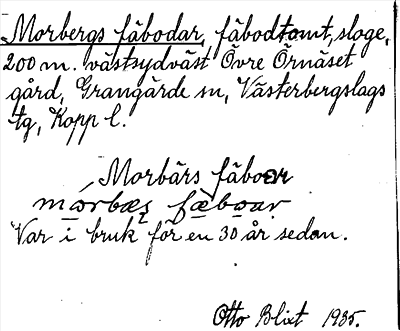 Morbergs fäbodar, fäbodtomt, sloge,
200 m. västsydväst Övre Örnäset
gård, Grangärde sn, Västerbergslags
tg, Kopp l.
Morbärs fäboar
Var i bruk för en 30 år sedan.
Otto Blixt 1935.